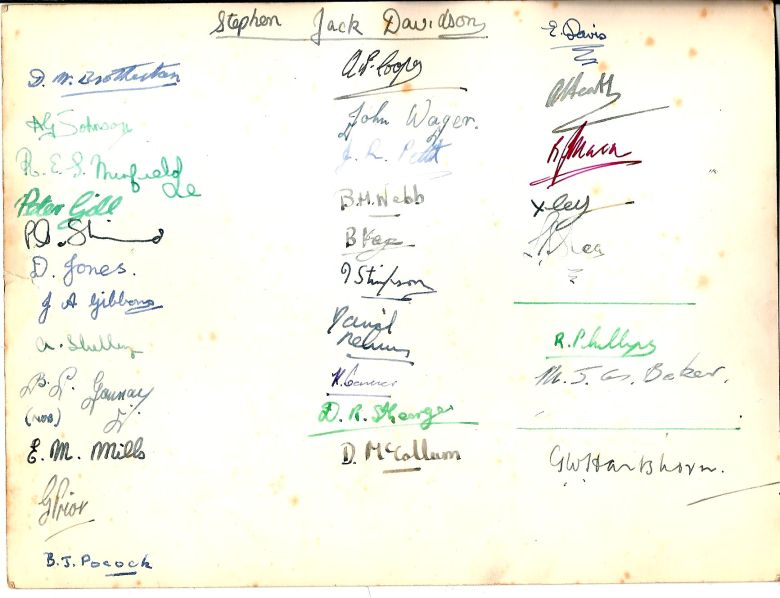 Stephen Jack Davidson
D. W. Brotherton
A G Johnson
R. E. S. Minfield
Peter Gill
D. Jones.
J A Gibbons
A. Shelley
B. L.
(NOB)
E. M. Mills
G Prior
B. J. Pocock
A P Cooper
John Wager.
J. R. Pettit
B. M. Webb
B Kay
J Stimpson
David
D. R. St George
D. McCollum
E. Davis
A Heath
K J Mann
R. Phillips
M. J. G. Baker.
G W Hartshorn.